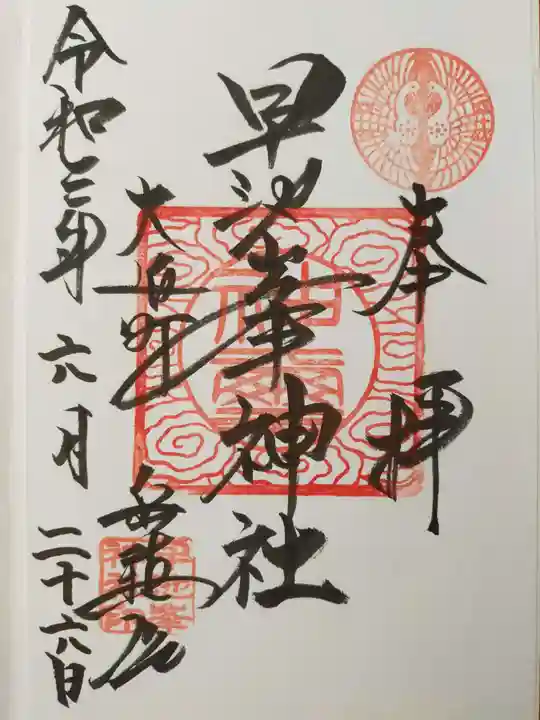 奉拝
早池峯神社
大迫町
岳鎮座
令和三年
六月
二十六日